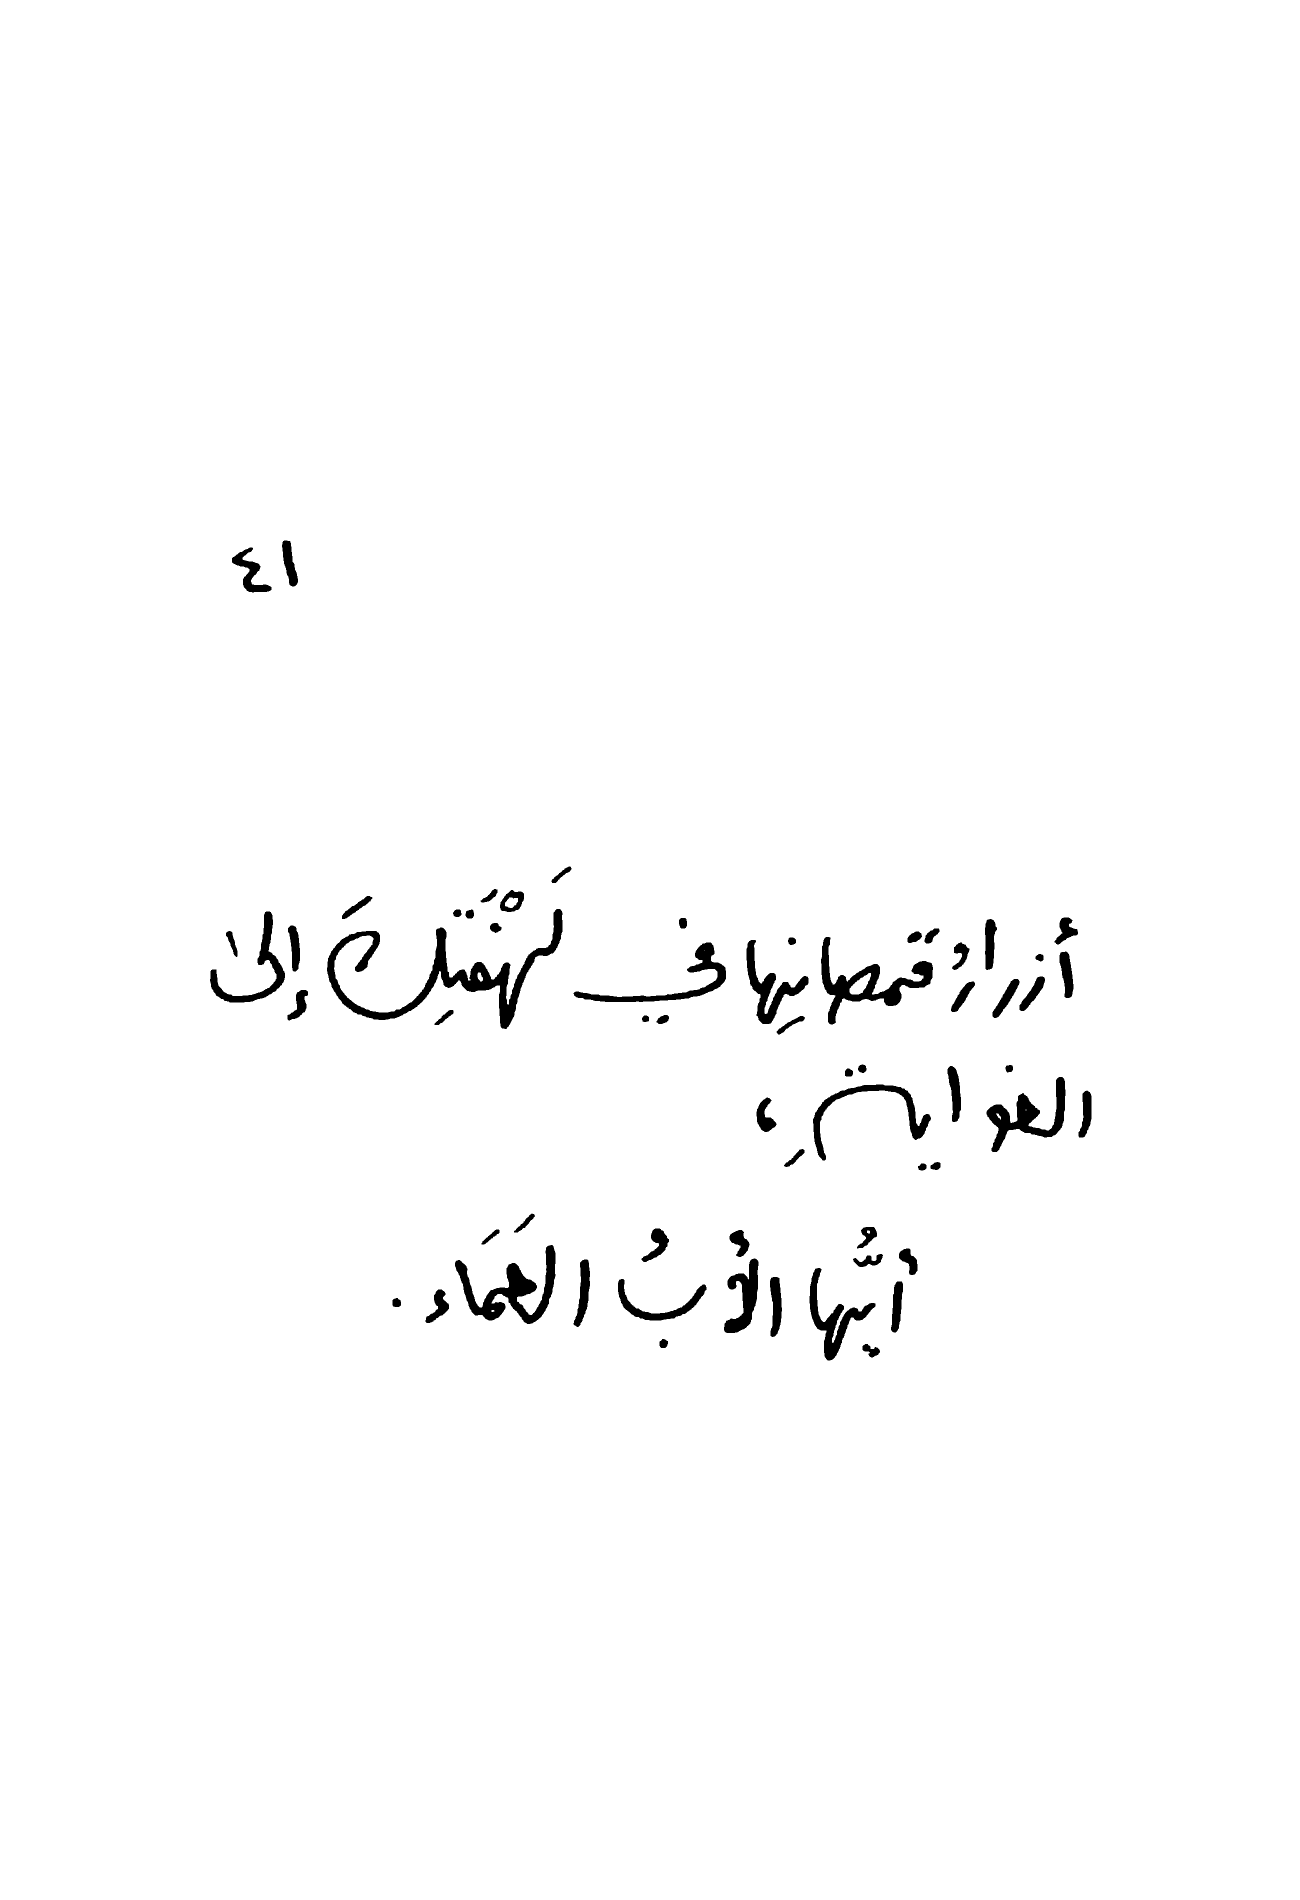 ٤١
أزرارُ قَمصانِها في لَهْفَتِكَ إلىٰ
الغوايةِ،
أيُّها الأبُ العَمَاء.